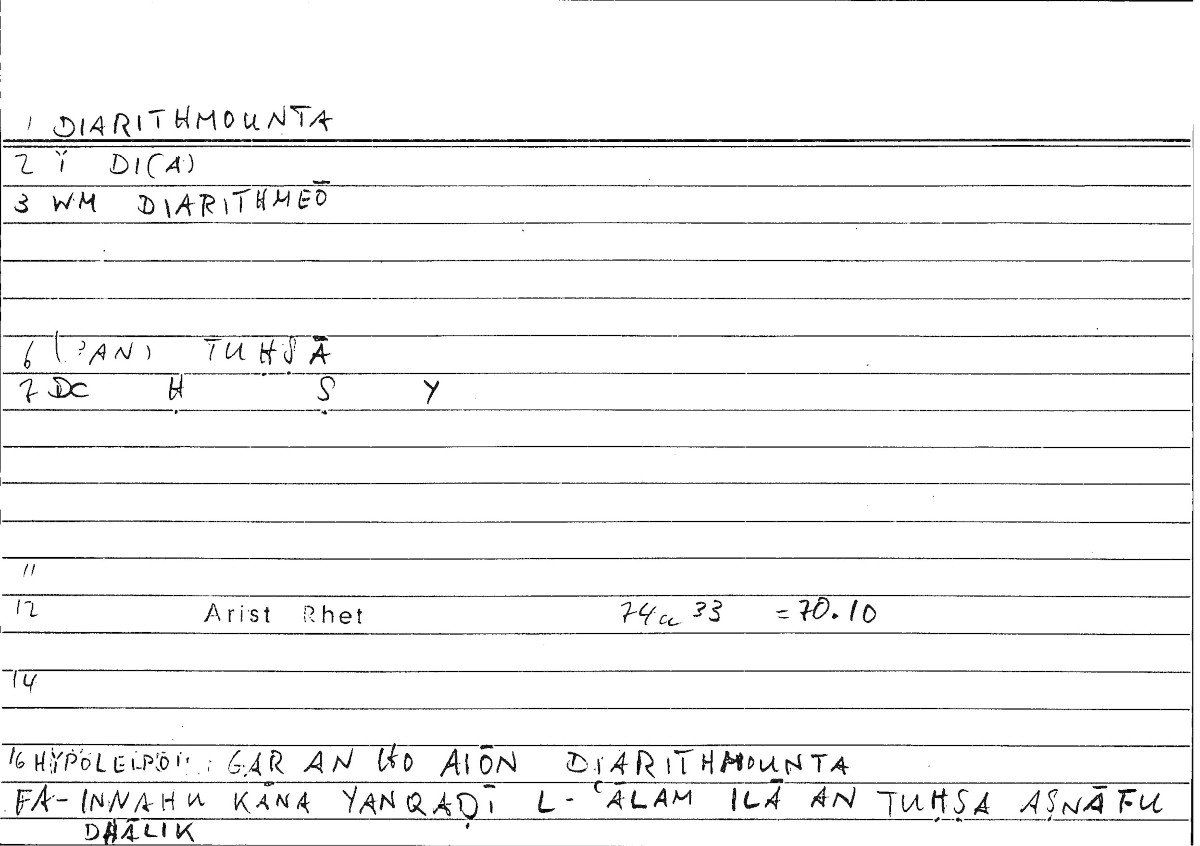 1 DIARITHMOUNTA
2 Ï DI(A)
3 WM DIARITHMEŌ
6 (ʾAN) TUḤṢĀ
7 DC Ḥ Ṣ Y
11
12 Arist Rhet 74a 33 =70.10
14
16 GAR AN HO AIŌN DIARITHMOUNTA
FA-INNAHU KĀNA YANQAḌĪ L-ʿĀLAM ILĀ AN TUḤṢA AṢNĀFU
DHĀLIK